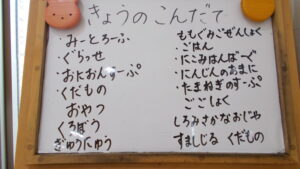 きょうのこんだて
・みーとろーふ
・ぐらっせ
・おにおんすーぷ
・くだもの
おやつ
くろぼう
ぎゅうにゅう
ももぐみごぜんしょく
・ごはん
・にこみはんばーぐ
・にんじんのあまに
・たまねぎのすーぷ
ごごしょく
しろみさかなおじや
すましじる くだもの